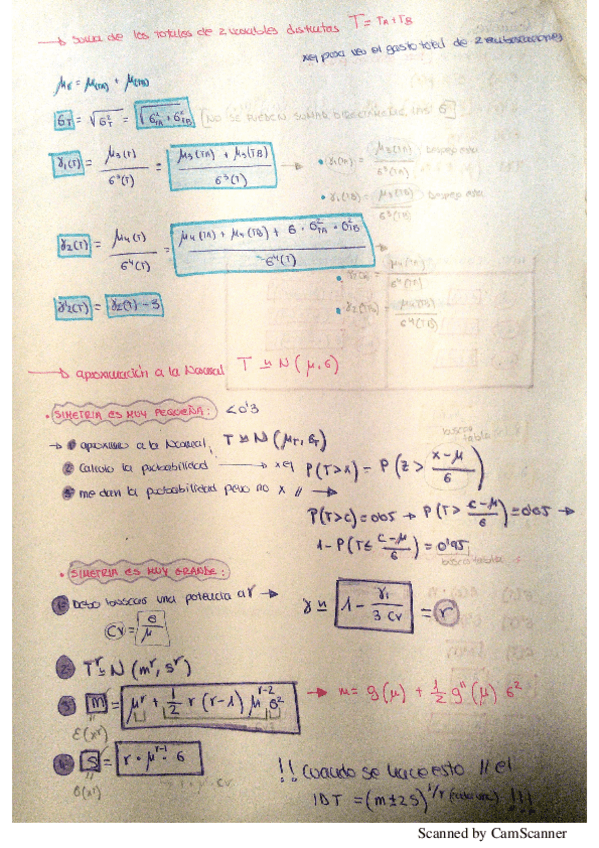 → suma de los totales de 2 variables distintas T = TA + TB
xej para ver el gasto total de 2
μT = μ(TA) + μ(TB)
σT = √σ²T = √σ²TA + σ²TB [NO SE PUEDEN SUMAR DIRECTAMENTE LAS σ]
γ1(T) = μ3(T) / σ³(T) = μ3(TA) + μ3(TB) / σ³(T) → • γ1(TA) = μ3(TA) / σ³(TA) Despejo esta
• γ1(TB) = μ3(TB) / σ³(TB) Despejo esta
γ2(T) = μ4(T) / σ⁴(T) = μ4(TA) + μ4(TB) + 6 · σ²TA · σ²TB / σ⁴(T) →
• γ2(TA) = μ4(TA) / σ⁴(TA)
γ'2(T) = γ2(T) - 3 • γ2(TB) = μ4(TB) / σ⁴(TB)
→ aproximación a la Normal T ≃ N(μ, σ)
• SIMETRIA ES MUY PEQUEÑA: <0'3
→ 1 aproximo a la Normal, T ≃ N(μT, σT)
2 Calculo la probabilidad → xej P(T>x) = P(Z > x-μ / σ)
3 me dan la probabilidad pero no x // →
P(T>c) = 0'05 → P(T> c-μ / σ) = 0'05 →
1 - P(T≤ c-μ / σ) = 0'95
busco tablas
• SIMETRIA ES MUY GRANDE:
1 Debo buscar una potencia a r → γ ≃ 1 - γ1 / 3 CV = r
CV = σ / μ
2 Tʳ ≃ N(mʳ, sʳ)
3 m = μʳ + 1/2 r (r-1) μʳ⁻² σ² → m = g(μ) + 1/2 g''(μ) σ²
E(xʳ)
4 s = r · μʳ⁻¹ · σ
σ(xʳ)
!! Cuando se hace esto // el
IDT = (m ± 2s)^1/r !!!
Scanned by CamScanner